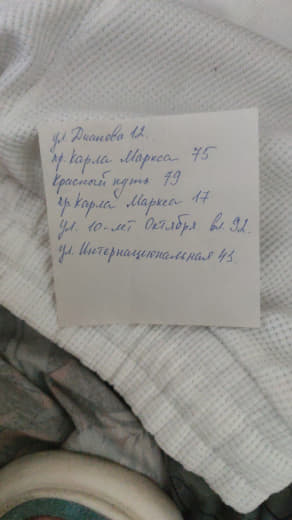 ул Дианова 12
пр. Карла Маркса 75
Красный путь 79
пр Карла Маркса 17
ул. 10-лет Октября вл 92.
ул. Интернациональная 43